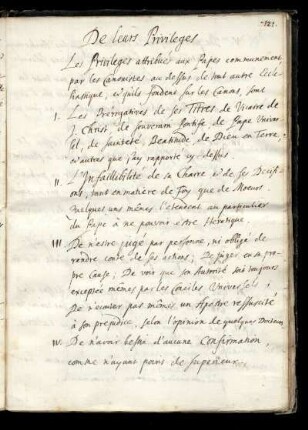 121.
De leurs Privileges.
Les Privileges attribués aux Papes communement
par les Canonistes au dessus de tout autre Eccle-
siastique, et qu'ils fondent sur les Canons, sont
I. Les Prerogatives de ses Titres de Vicaire de
J. Christ, de souverain Pontife de Pape Univer-
sel, de sainteté, Beatitude, de Dieu en Terre,
et autres que j'ay rapporte cy dessus.
II. L'Infaillibilité de sa Chaire et de ses Decisi-
ons, tant en matiere de Foy que de Moeurs.
Quelques uns mêmes l'etendent au particulier
du Pape à ne pouvoir être Heretique.
III. De n'estre jugé par personne, ni obligé de
rendre conte de ses actions; De juger en sa pro-
pre Cause; De voir que son Autorité soit toujours
exceptée mêmes par les Conciles Universels;
De n'ecouter pas mêmes un Apostre ressuscité
à son prejudice, selon l'opinion de quelques Docteurs
IV. De n'avoir besoin d'aucune Confirmation,
comme n'ayant point de superieur.